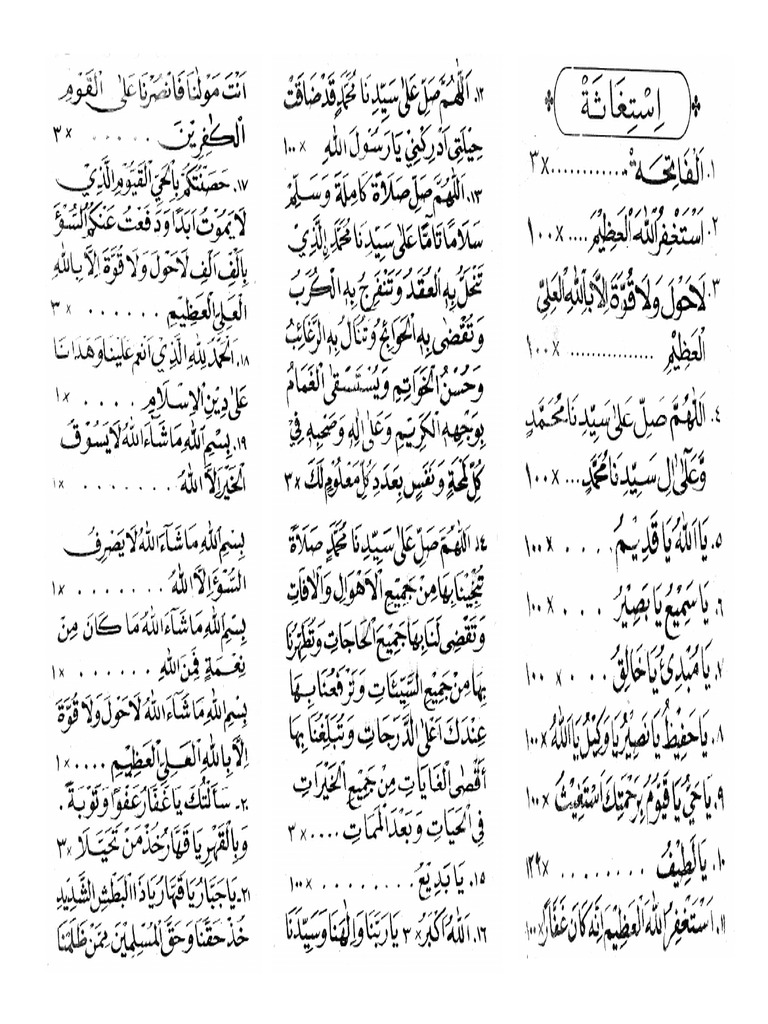 اِسْتِغَاثَةْ
١. اَلْفَاتِحَةْ ............ ×٣
٢. اَسْتَغْفِرُاللهَ الْعَظِيْمَ .... ×١٠٠
٣. لَاحَوْلَ وَلَاقُوَّةَ اِلَّابِاللهِ الْعَلِيِّ
الْعَظِيْمِ ............... ×١٠٠
٤. اَللّٰهُمَّ صَلِّ عَلىٰ سَيِّدِنَامُحَمَّدٍ
وَّعَلىٰٓ اٰلِ سَيِّدِنَا مُحَمَّدٍ ... ×١٠٠
٥. يَااَللهُ يَاقَدِيْمُ . . . . ×١٠٠
٦. يَاسَمِيْعُ يَابَصِيْرُ . . . ×١٠٠
٧. يَامُبْدِئُ يَاخَالِقُ . . . × ١٠٠
٨. يَاحَفِيْظُ يَانَصِيْرُ يَاوَكِيْلُ يَااَللهُ ×١٠٠
٩. يَاحَيُّ يَاقَيُّوْمُ بِرَحْمَتِكَ اَسْتَغِيْثُ ×١٠٠
١٠. يَالَطِيْفُ . . . . . . . . ×١٢٩
١١. اَسْتَغْفِرُ اللهَ الْعَظِيْمَ اِنَّهُ كَانَ غَفَّارًا ×١٠٠
١٢. اَللّٰهُمَّ صَلِّ عَلىٰ سَيِّدِنَا مُحَمَّدٍ قَدْ ضَاقَتْ
حِيْلَتِى اَدْرِكْنِيْ يَارَسُوْلَ اللهِ ×١٠٠
١٣. اَللّٰهُمَّ صَلِّ صَلَاةً كَامِلَةً وَسَلِّمْ
سَلَامًا تَامًّا عَلىٰ سَيِّدِنَا مُحَمَّدِ ࣙالَّذِيْ
تَنْحَلُّ بِهِ الْعُقَدُ وَتَنْفَرِجُ بِهِ الْكُرَبُ
وَتُقْضٰى بِهِ الْحَوَائِجُ وَتُنَالُ بِهِ الرَّغَائِبُ
وَحُسْنُ الْخَوَاتِمِ وَيُسْتَسْقَى الْغَمَامُ
بِوَجْهِهِ الْكَرِيْمِ وَعَلىٰ اٰلِهِ وَصَحْبِهِ فِيْ
كُلِّ لَمْحَةٍ وَنَفَسٍ بِعَدَدِ كُلِّ مَعْلُوْمٍ لَكَ ×٣
١٤. اَللّٰهُمَّ صَلِّ عَلىٰ سَيِّدِنَا مُحَمَّدٍ صَلَاةً
تُنْجِيْنَا بِهَا مِنْ جَمِيْعِ الْاَهْوَالِ وَالْاٰفَاتِ
وَتَقْضِى لَنَا بِهَا جَمِيْعَ الْحَاجَاتِ وَتُطَهِّرُنَا
بِهَا مِنْ جَمِيْعِ السَّيِّئَاتِ وَتَرْفَعُنَا بِهَا
عِنْدَكَ اَعْلَى الدَّرَجَاتِ وَتُبَلِّغُنَا بِهَا
أَقْصَى الْغَايَاتِ مِنْ جَمِيْعِ الْخَيْرَاتِ
فِى الْحَيَاتِ وَبَعْدَ الْمَمَاتِ .... × ٣
١٥. يَابَدِيْعُ . . . . . . . . ×١٠٠
١٦. اَللهُ اَكْبَرُ ×٣ يَارَبَّنَا وَاِلٰهَنَا وَسَيِّدَنَا
اَنْتَ مَوْلٰنَا فَانْصُرْنَا عَلَى الْقَوْمِ
الْكٰفِرِيْنَ . . . . . × ٣
١٧. حَصَّنْتُكُمْ بِالْحَيِّ الْقَيُّوْمِ الَّذِيْ
لَايَمُوْتُ اَبَدًا وَدَفَعْتُ عَنْكُمُ السُّوْٓءَ
بِاَلْفِ اَلْفِ لَاحَوْلَ وَلَاقُوَّةَ اِلَّا بِاللهِ
الْعَلِيِّ الْعَظِيْمِ . . . . . . × ٣
١٨. اَلْحَمْدُ لِلهِ الَّذِيْ اَنْعَمَ عَلَيْنَا وَهَدَانَا
عَلىٰ دِيْنِ الْاِسْلَامِ . . . . ×١
١٩. بِسْمِ اللهِ مَاشَآءَ اللهُ لَايَسُوْقُ
الْخَيْرَ اِلَّا اللهُ . . . . . . . ×١
بِسْمِ اللهِ مَاشَآءَ اللهُ لَايَصْرِفُ
السُّوْٓءَ اِلَّا اللهُ . . . . . . . ×١
بِسْمِ اللهِ مَاشَآءَ اللهُ مَا كَانَ مِنْ
نِعْمَةٍ فَمِنَ اللهِ . . . . . . ×١
بِسْمِ اللهِ مَاشَآءَ اللهُ لَاحَوْلَ وَلَا قُوَّةَ
اِلَّا بِاللهِ الْعَلِيِّ الْعَظِيْمِ .... ×١
٢٠. سَأَلْتُكَ يَاغَفَّارُ عَفْوًا وَتَوْبَةً .
وَبِالْقَهْرِ يَاقَهَّارُ خُذْ مَنْ تَحَيَّلَا ×٣
٢١. يَاجَبَّارُ يَاقَهَّارُ يَاذَا الْبَطْشِ الشَّدِيْدِ
خُذْ حَقَّنَا وَحَقَّ الْمُسْلِمِيْنَ مِمَّنْ ظَلَمَنَا